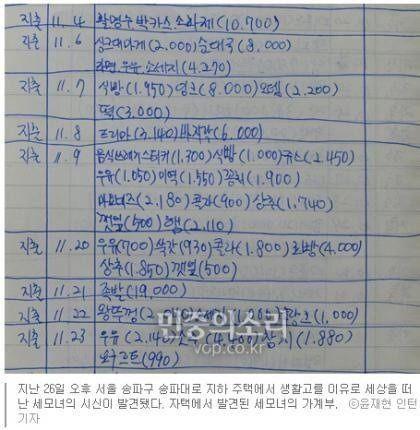 지출 11.4 활명수 박카스 소화제 (10.700)
지출 11.6 싱크대마개 (2.000) 순대국 (8.000)
라면, 우유, 소세지 (4.270)
지출 11.7 식빵 (1.950) 잉크 (8.000) 오뎅 (2.200)
떡 (3.000)
지출 11.8 프리마 (3.140) (6.000)
지출 11.9 음식쓰레기스티커 (1.300) 식빵 (1.000) 쥬스 (2.450)
우유 (1.050) 미역 (1.550) 꽁치 (1.900)
마요네즈 (2.180) 콜라 (900) 상추 (1.740)
깻잎 (500) 햄 (2.110)
지출 11.20 우유 (700) 쑥갓 (930) 콜라 (1.800) 초밥 (4.000)
상추 (1.850) 깻잎 (500)
지출 11.21 족발 (19,000)
지출 11.22 왕뚜껑 (1,000)
지출 11.23 우유 (2.140) (1.880)
요구르트 (990)
민중의소리
vop.co.kr
지난 26일 오후 서울 송파구 송파대로 지하 주택에서 생활고를 이유로 세상을 떠
난 세모녀의 시신이 발견됐다. 자택에서 발견된 세모녀의 가계부. ⓒ윤재현 인턴
기자